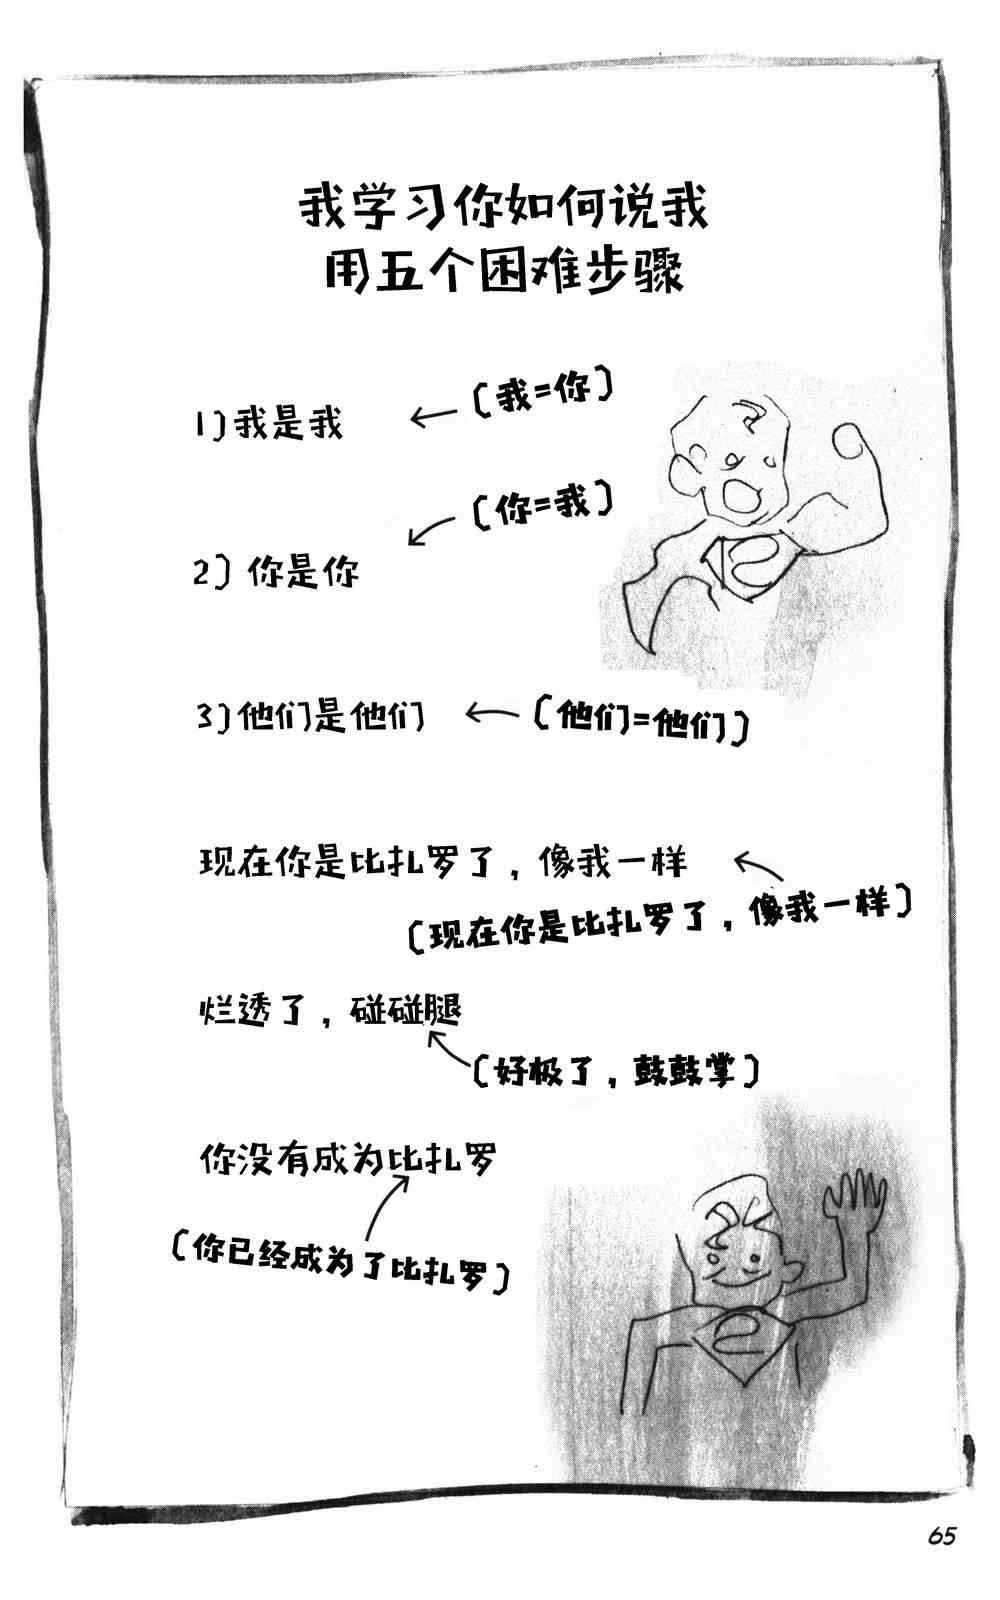 我学习你如何说我
用五个困难步骤
1)我是我
(我=你)
2)你是你
(你=我)
3)他们是他们
(他们=他们)
现在你是比扎罗了，像我一样
(现在你是比扎罗了，像我一样)
烂透了，碰碰腿
(好极了，鼓鼓掌)
你没有成为比扎罗
(你已经成为了比扎罗)
65